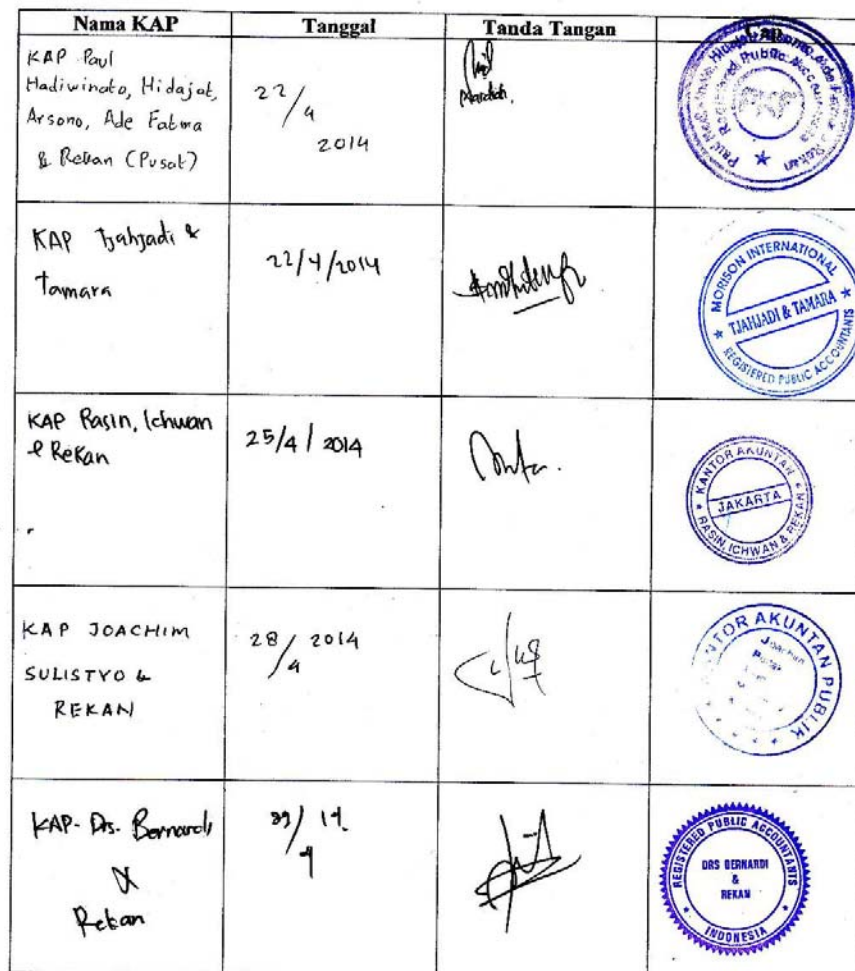 Nama KAP Tanggal Tanda Tangan Cap
KAP Paul
Hadiwinato, Hidajat,
Arsono, Ade Fatma
& Rekan (Pusat)
22/4
2014
Registered Public Accountants
KAP Tjahjadi &
Tamara
22/4/2014
MORISON INTERNATIONAL
TJAHJADI & TAMARA
REGISTERED PUBLIC ACCOUNTANTS
KAP Rasin, Ichwan
& Rekan
25/4/2014
KANTOR AKUNTAN
JAKARTA
RASIN, ICHWAN & REKAN
KAP JOACHIM
SULISTYO &
REKAN
28/4 2014
KANTOR AKUNTAN PUBLIK
Joachim
KAP-Drs. Bernardi
&
Rekan
REGISTERED PUBLIC ACCOUNTANTS
DRS BERNARDI
&
REKAN
INDONESIA